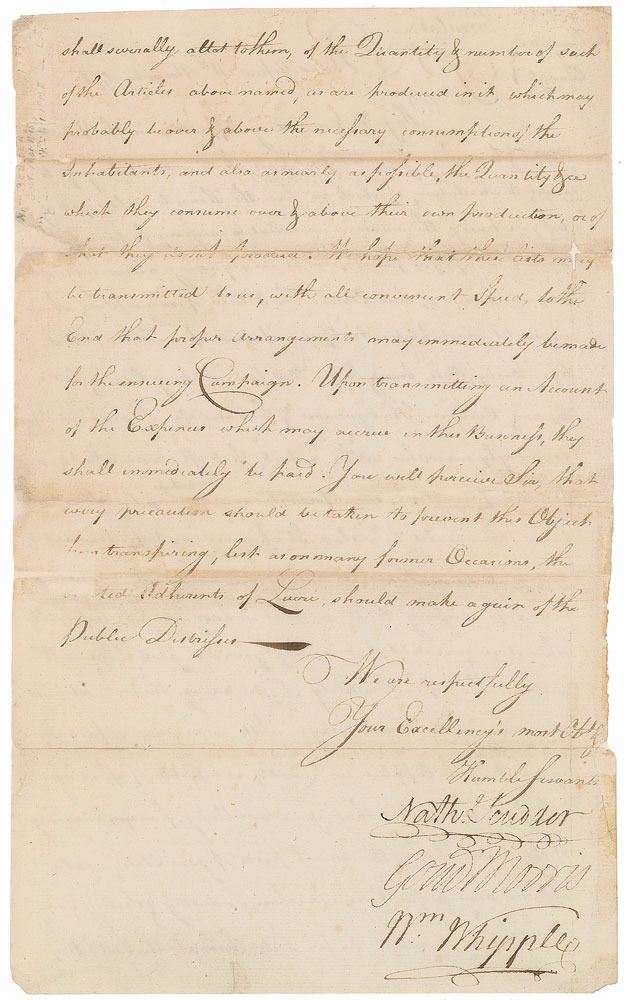 shall severally allot to them, of the Quantity & number of such
of the Articles above named, as are produced in it which may
probably be over & above the necessary consumption of the
Inhabitants, and also as nearly as possible, the Quantity &ca
which they consume over & above their own production, or of
what they do not produce. We hope that these lists may
be transmitted to us, with all convenient Speed, to the
End that proper arrangements may immediately be made
for the ensuing Campaign. Upon transmitting an Account
of the Expences which may accrue in this Business, they
shall immediately be paid. You will perceive Sir, that
every precaution should be taken to prevent this Object
from transpiring, lest as on many former Occasions, the
Adherents of Lucre, should make a gain of the
Public Distresses
We are respectfully
Your Excellency's most Obt. &
Humble Servants
Nathl Scudder
Gouv Morris
Wm Whipple